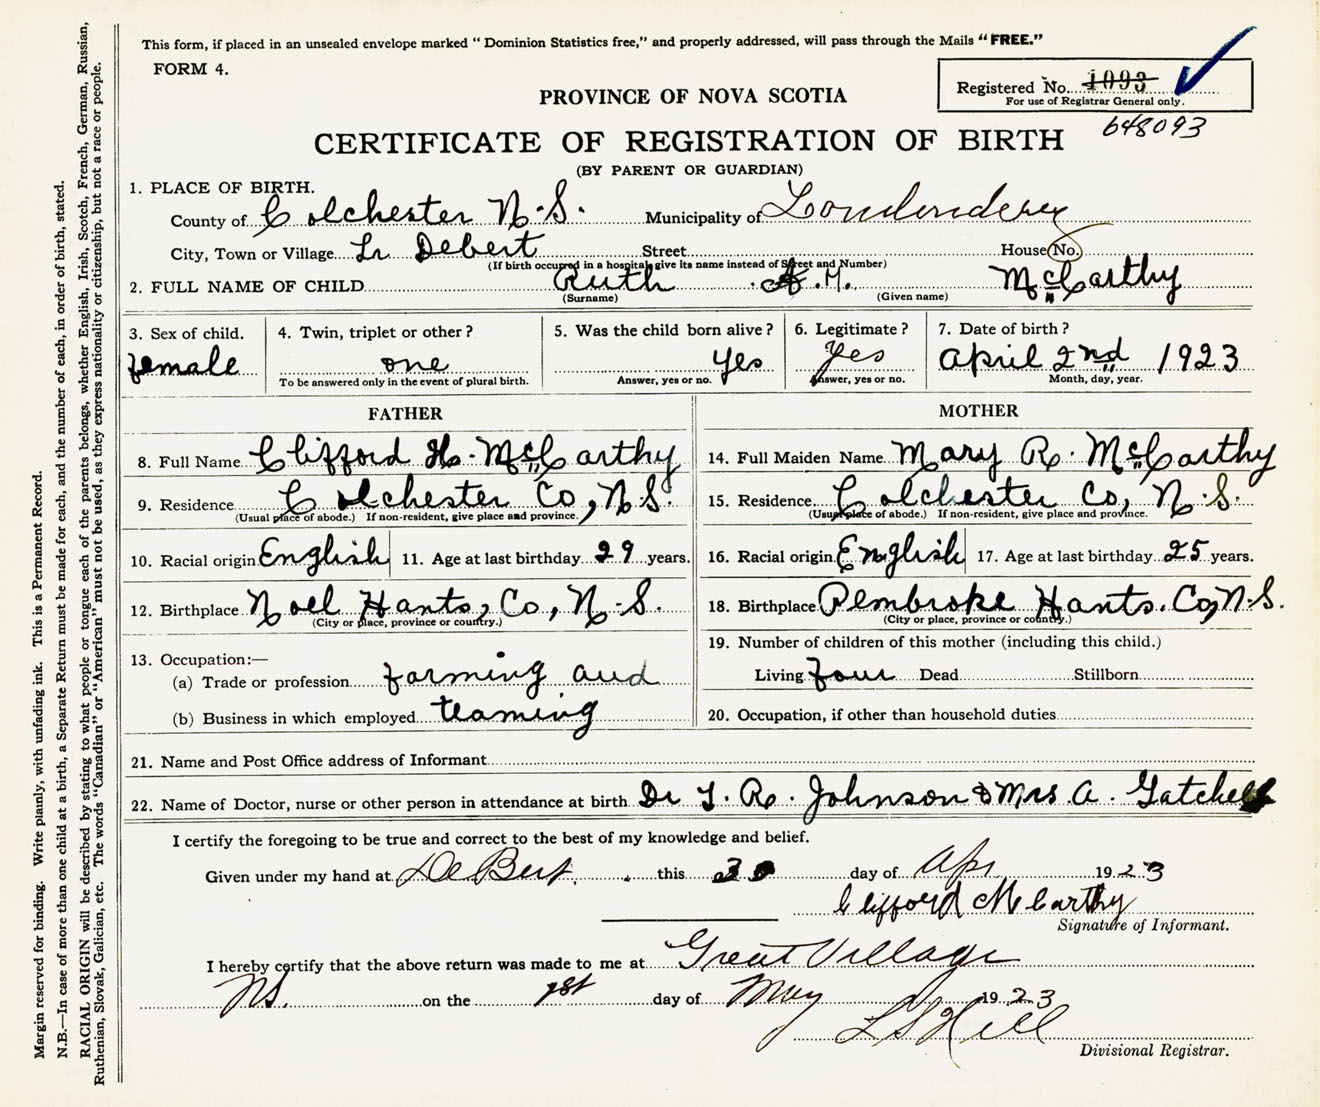 This form, if placed in an unsealed envelope marked "Dominion Statistics free," and properly addressed, will pass through the Mails "FREE."
FORM 4.
Registered No. 1093
For use of Registrar General only.
648093
PROVINCE OF NOVA SCOTIA
CERTIFICATE OF REGISTRATION OF BIRTH
(BY PARENT OR GUARDIAN)
1. PLACE OF BIRTH.
County of Colchester N.S. Municipality of Londonderry
City, Town or Village Lr Debert Street House No.
(If birth occurred in a hospital give its name instead of Street and Number)
2. FULL NAME OF CHILD Ruth A. M. McCarthy
(Surname) (Given name)
3. Sex of child. female
4. Twin, triplet or other? one
To be answered only in the event of plural birth.
5. Was the child born alive? Yes
Answer, yes or no.
6. Legitimate? Yes
Answer, yes or no.
7. Date of birth? April 2nd 1923
Month, day, year.
FATHER
8. Full Name Clifford H. McCarthy
9. Residence Colchester Co, N.S.
(Usual place of abode.) If non-resident, give place and province.
10. Racial origin English 11. Age at last birthday 29 years.
12. Birthplace Noel Hants, Co, N.S.
(City or place, province or country.)
13. Occupation:—
(a) Trade or profession farming and
(b) Business in which employed teaming
MOTHER
14. Full Maiden Name Mary R. McCarthy
15. Residence Colchester Co, N.S.
(Usual place of abode.) If non-resident, give place and province.
16. Racial origin English 17. Age at last birthday 25 years.
18. Birthplace Pembroke Hants. Co, N.S.
(City or place, province or country.)
19. Number of children of this mother (including this child.)
Living four Dead Stillborn
20. Occupation, if other than household duties
21. Name and Post Office address of Informant
22. Name of Doctor, nurse or other person in attendance at birth Dr T. R. Johnson & Mrs A. Gatchell
I certify the foregoing to be true and correct to the best of my knowledge and belief.
Given under my hand at DeBert this 30 day of Apr 1923
Clifford McCarthy
Signature of Informant.
I hereby certify that the above return was made to me at Great Village
NS. on the 1st day of May 1923
L S Hill
Divisional Registrar.
Margin reserved for binding. Write plainly, with unfading ink. This is a Permanent Record.
N.B.—In case of more than one child at a birth, a Separate Return must be made for each, and the number of each, in order of birth, stated.
RACIAL ORIGIN will be described by stating to what people or tongue each of the parents belongs, whether English, Irish, Scotch, French, German, Russian,
Ruthenian, Slovak, Galician, etc. The words "Canadian" or "American" must not be used, as they express nationality or citizenship, but not a race or people.